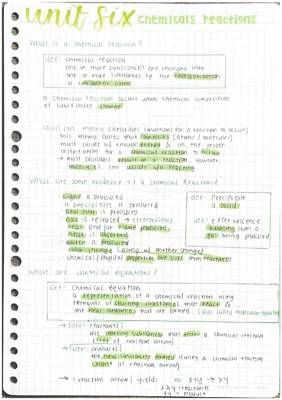 unit six chemicals reactions
what is a chemical reaction?
def: chemical reaction
one or more substances are changed into
one or more substances by the reorganization
of component atoms
a chemical reaction occurs when chemical composition
of substances change
collision theory (describes conditions for a reaction to occur)
this theory states that particles (atoms / molecules)
must collide w/ enough energy & in the proper
orientation for a chemical reaction to occur
→ most collisions result in a reaction however
molecules can collide w/o reacting
what are some evidence of a chemical reaction?
light is produced
a precipitate is produced
new odor is produced
gas is released → effervescence
heat and/or flame produced
heat is absorbed
water is produced
color change (along w/ another change)
chemical/physical properties are diff than reactants
def: precipitate
a solid
def: effervescence
bubbling when a
gas being produced
what are chemical equations?
def: chemical equation
a representation of a chemical reaction using
formulas of starting substances that react &
the new substances that are formed (also called molecular equation)
→ def: reactants
the starting substances that enter a chemical reaction
(left of reaction arrow)
→ def: products
the new substances formed during a chemical reaction
(right of reaction arrow)
→ reaction arrow / yields
ex: x+y → xy
x & y = reactants
xy = product